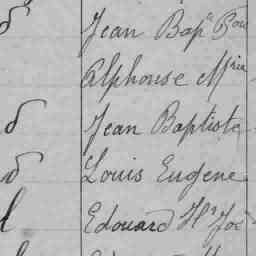 Jean Bap^te Bon
Alphonse M^rice
d Jean Baptiste
d Louis Eugene
d Edouard H^i Jos